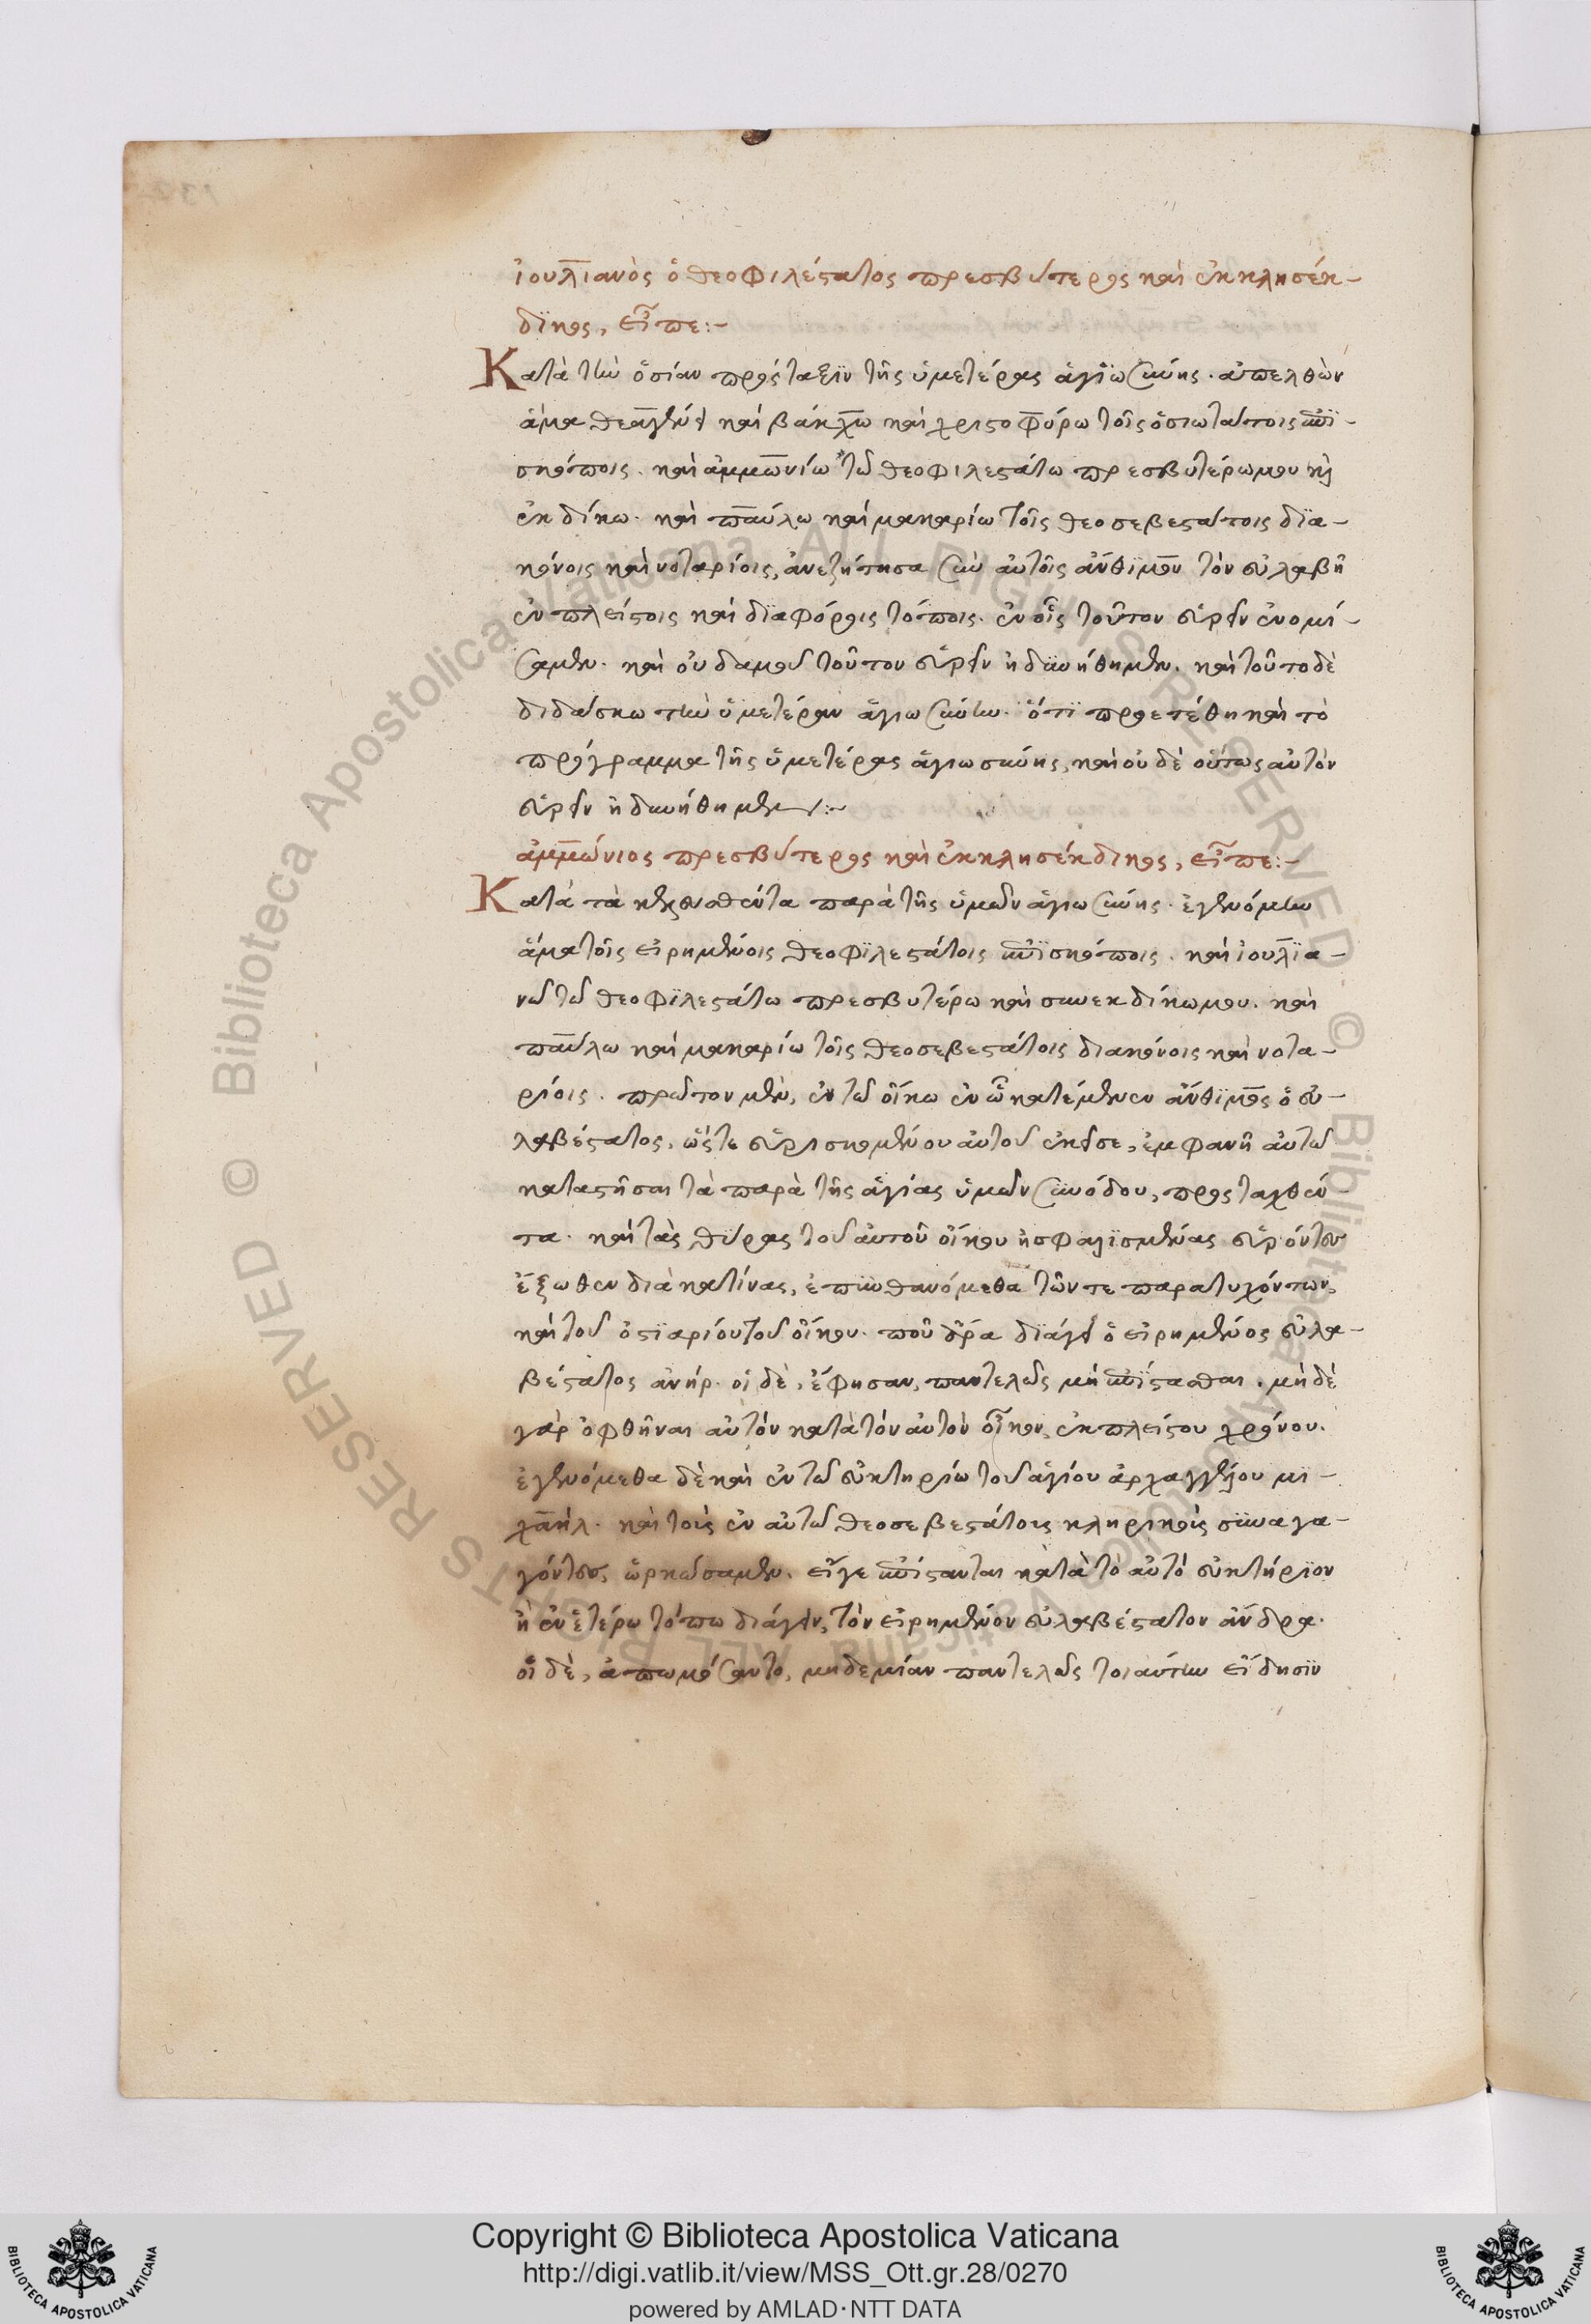 ἰουλιανὸς ὁ θεοφιλέστατος πρεσβύτερος καὶ ἐκκλησέκ-
δϊκος, εἶπε:-
Κατὰ τὴν ὁσίαν πρόσταξϊν τῆς ὑμετέρας ἁγϊωσύνης· ἀπελθὼν
ἅμα θεαγένει καὶ βάκχω καὶ χριστοφόρω τοῖς ὁσιωτάτοις ἐπϊ-
σκόποις· καὶ ἀμμωνίω τῶ θεοφιλεστάτω πρεσβυτέρω μου καὶ
ἐκδίκω· καὶ παύλω καὶ μακαρίω τοῖς θεοσεβεστάτοις δϊα-
κόνοις καὶ νοταρίοις, ἀνεζήτησα σὺν αὐτοῖς ἄνθϊμον τὸν εὐλαβῆ
ἐν πλείστοις καὶ δϊαφόροις τόποις· ἐν οἷς τοῦτον εὑρεῖν ἐνομί-
σαμεν· καὶ οὐδαμοῦ τοῦτον εὑρεῖν ἠδυνήθημεν· καὶ τοῦτο δὲ
διδάσκω τὴν ὑμετέραν ἁγιωσύνην· ὅτϊ προετέθη καὶ τὸ
πρόγραμμα τῆς ὑμετέρας ἁγιωσύνης, καὶ οὐδὲ οὕτως αὐτὸν
εὑρεῖν ἠδυνήθημεν:-
ἀμμώνιος πρεσβύτερος καὶ ἐκκλησέκδικος, εἶπε:-
Κατὰ τὰ κελευσθέντα παρὰ τῆς ὑμῶν ἁγιωσύνης· ἐγενόμην
ἅμα τοῖς εἰρημένοις θεοφϊλεστάτοις ἐπϊσκόποις· καὶ ἰουλϊα-
νῶ τῶ θεοφϊλεστάτω πρεσβυτέρω καὶ συνεκδίκω μου· καὶ
παύλω καὶ μακαρίω τοῖς θεοσεβεστάτοις διακόνοις καὶ νοτα-
ρίοις· πρῶτον μὲν, ἐν τῶ οἴκω ἐν ὧ κατέμενεν ἄνθϊμος ὁ εὐ-
λαβέστατος, ὥστε εὑρισκομένου αὐτοῦ ἐκεῖσε, ἐμφανῆ αὐτῶ
καταστῆσαι τὰ παρὰ τῆς ἁγίας ὑμῶν συνόδου, προσταχθέν-
τα· καὶ τὰς θύρας τοῦ αὐτοῦ οἴκου ἠσφαλϊσμένας εὑρόντες
ἔξωθεν διὰ κατίνας, ἐπϋνθανόμεθα τῶν τε παρατυχόντων,
καὶ τοῦ ὀστϊαρίου τοῦ οἴκου· ποῦ ἄρα δϊάγει ὁ εἰρημένος εὐλα-
βέστατος ἀνήρ· οἱ δὲ, ἔφησαν, παντελῶς μὴ ἐπϊστασθαι· μὴ δὲ
γὰρ ὀφθῆναι αὐτὸν κατὰ τὸν αὐτὸν οἶκον, ἐκ πλείστου χρόνου·
ἐγενόμεθα δὲ καὶ ἐν τῶ εὐκτηρίω τοῦ ἁγίου ἀρχαγγέλου μϊ-
χαήλ· καὶ τοὺς ἐν αὐτῶ θεοσεβεστάτους κληρικοὺς σϋναγα-
γόντες, ὡρκώσαμεν· εἴγε ἐπίστανται κατὰ τὸ αὐτὸ εὐκτήρϊον
ἢ ἐν ἑτέρω τόπω διάγειν, τὸν εἰρημένον εὐλαβέστατον ἄνδρα·
οἱ δὲ, ἀπωμόσαντο, μηδεμίαν παντελῶς τοιαύτην εἴδησϊν
Copyright © Biblioteca Apostolica Vaticana
http://digi.vatlib.it/view/MSS_Ott.gr.28/0270
powered by AMLAD·NTT DATA
BIBLIOTECA APOSTOLICA VATICANA
BIBLIOTECA APOSTOLICA VATICANA
© Biblioteca Apostolica Vaticana ALL RIGHTS RESERVED © Biblioteca Apostolica Vaticana ALL RIGHTS RESERVED